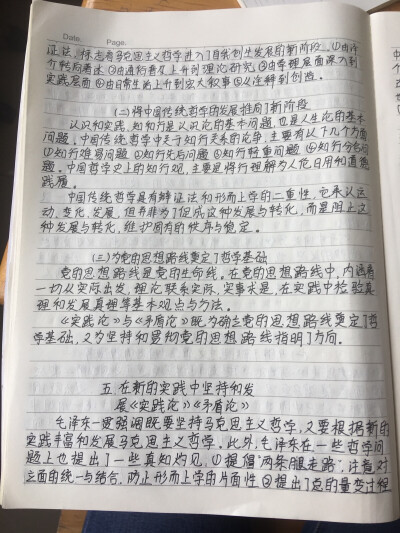 Date. Page.
证法,标志着马克思主义哲学进入了自我创生发展的新阶段。①由译
介转向著述 ②由通俗普及上升到理论研究 ③由学理层面深入到
实践层面 ④由日常生活上升到宏大叙事 ⑤从注释到创造。
(二)将中国传统哲学的发展推向了新阶段
认识和实践、知和行是认识论的基本问题,也是人生论的基本
问题。中国传统哲学史关于知行关系的论争,主要有以下几个方面
①知行难易问题 ②知行先后问题 ③知行轻重问题 ④知行分合问
题。中国哲学史上的知行观,主要是将行理解为人伦日用和道德
践履。
中国传统哲学具有辩证法和形而上学的二重性,它承认运
动、变化、发展,但并非为了促成这种发展与转化,而是阻止这
种发展与转化,维护固有的秩序与稳定。
(三)为党的思想路线奠定了哲学基础
党的思想路线是党的生命线。在党的思想路线中,内涵着
一切从实际出发,理论联系实际,实事求是,在实践中检验真
理和发展真理等基本观点与方法。
《实践论》与《矛盾论》既为确立党的思想路线奠定了哲
学基础,又为坚持和贯彻党的思想路线指明了方向。
五.在新的实践中坚持和发
展《实践论》《矛盾论》
毛泽东一贯强调既要坚持马克思主义哲学,又要根据新的
实践丰富和发展马克思主义哲学。此外,毛泽东在一些哲学问
题上也提出了一些真知灼见,①提倡“两条腿走路”,注意对
立面的统一与结合,防止形而上学的片面性 ②提出了总的量变过程